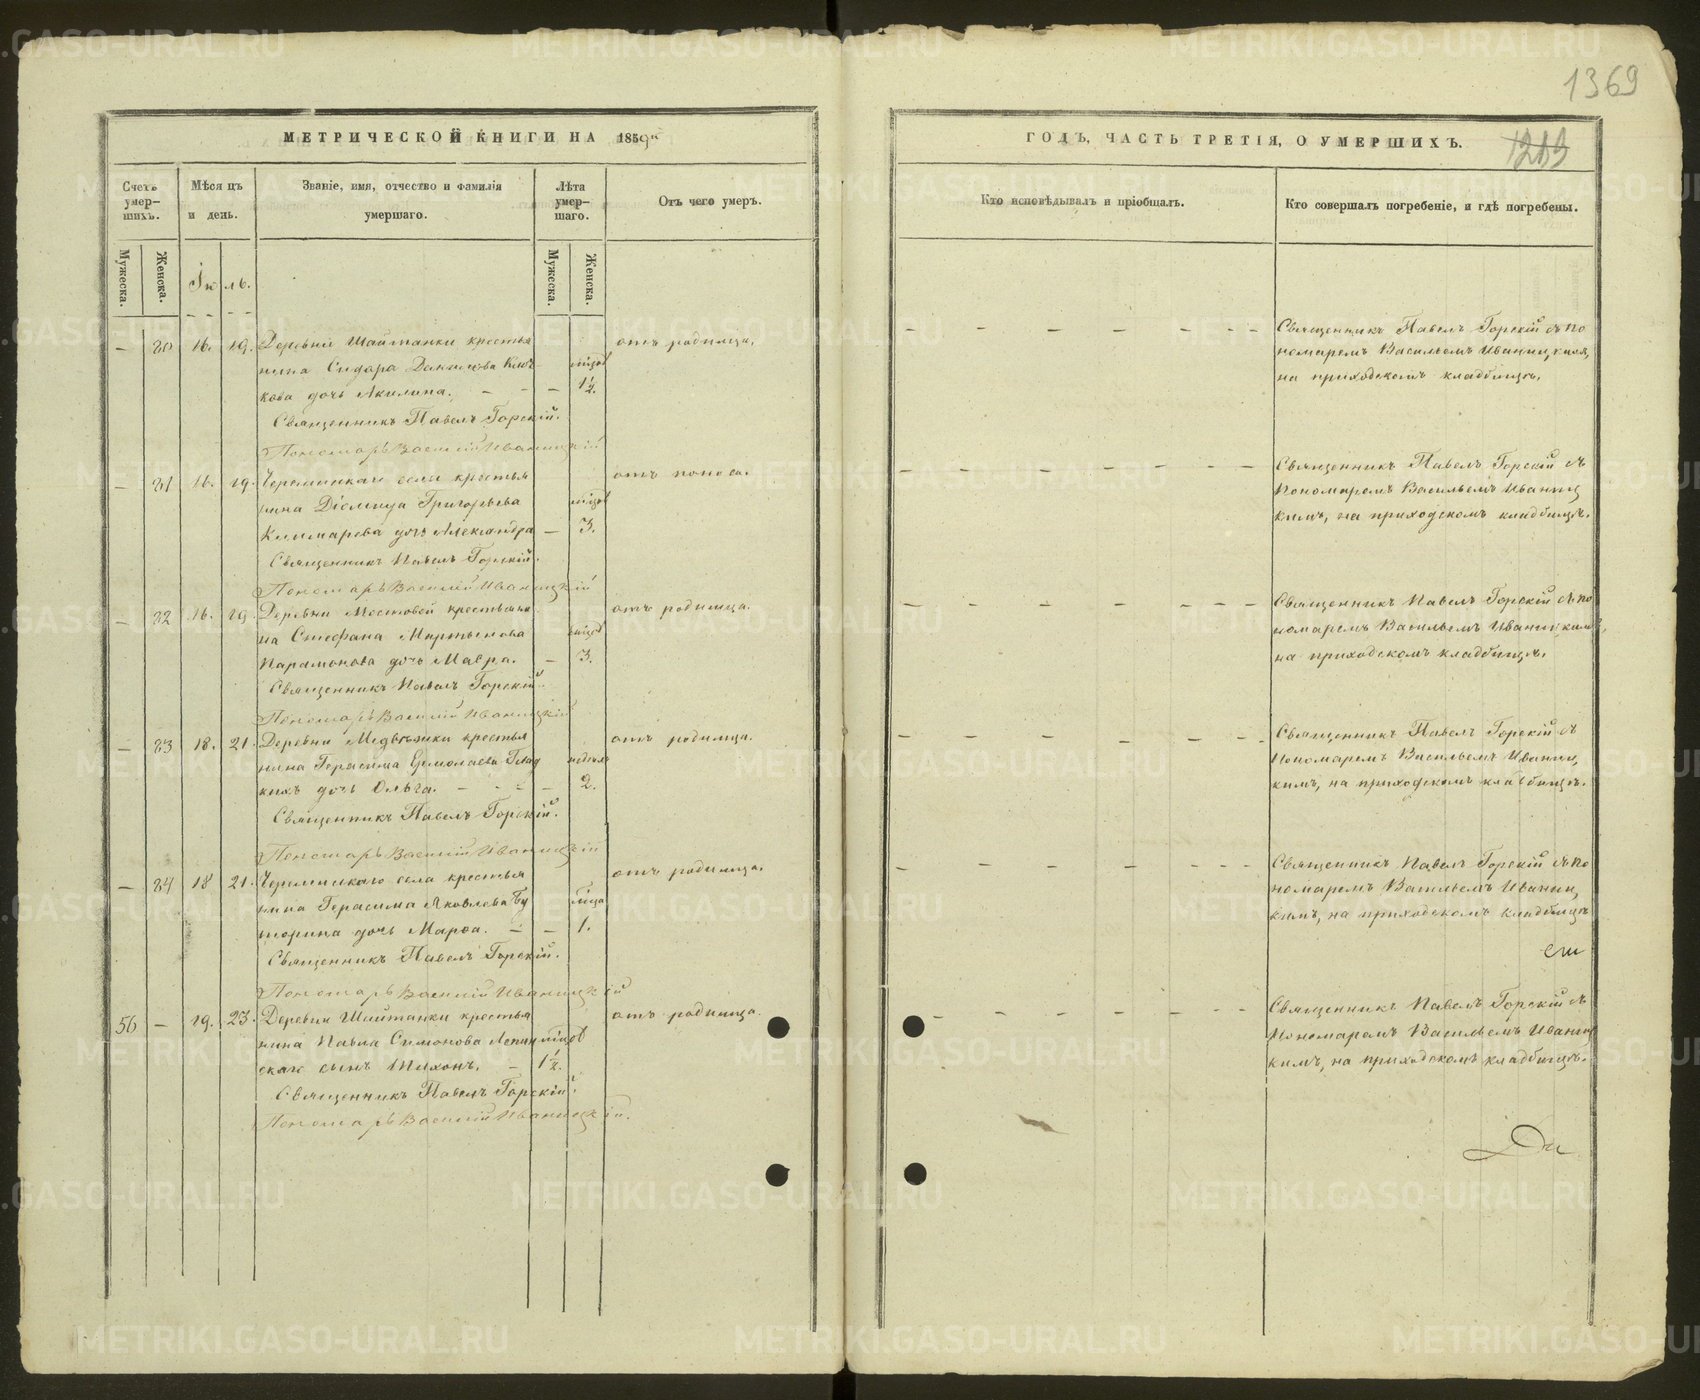 1369
МЕТРИЧЕСКОЙ КНИГИ НА 1859й
ГОДЪ, ЧАСТЬ ТРЕТІЯ, О УМЕРШИХЪ.
1289
Счетъ умер-шихъ.
Мѣсяцъ и день.
Званіе, имя, отчество и фамилія умершаго.
Лѣта умер-шаго.
Отъ чего умеръ.
Кто исповѣдывалъ и пріобщалъ.
Кто совершалъ погребеніе, и гдѣ погребены.
Мужеска.
Женска.
Іюль.
Мужеска.
Женска.
— 80 16. 19. Деревни Шайтанки крестья
нина Сидора Данилова Клю
кова дочь Акилина. — 1½. отъ родимца.
Священникъ Павелъ Горскій.
Пономарь Василій Иваницкій
Священникъ Павелъ Горскій съ по
номаремъ Васильемъ Иваницкимъ,
на приходскомъ кладбищѣ.
— 81 16. 19. Черемисскаго села крестья
нина Григорьева
дочь Александра — 3. отъ поноса.
Священникъ Павелъ Горскій.
Пономарь Василій Иваницкій
Священникъ Павелъ Горскій съ
Пономаремъ Васильемъ Иваниц
кимъ, на приходскомъ кладбищѣ.
— 82 16. 19. Деревни Мостовой крестьяни
на Стефана Мартынова
Парамонова дочь Мавра. — 3. отъ родимца.
Священникъ Павелъ Горскій.
Пономарь Василій Иваницкій
Священникъ Павелъ Горскій съ по
номаремъ Васильемъ Иваницкимъ,
на приходскомъ кладбищѣ.
— 83 18. 21. Деревни крестья
нина Герасима Ермолаева Глад
кихъ дочь Ольга. — недѣль 2. отъ родимца.
Священникъ Павелъ Горскій.
Пономарь Василій Иваницкій
Священникъ Павелъ Горскій съ
Пономаремъ Васильемъ Иваниц
кимъ, на приходскомъ кладбищѣ.
— 84 18 21. Черемисскаго села крестья
нина Герасима Яковлева Бу
торина дочь Марѳа. — 1. отъ родимца.
Священникъ Павелъ Горскій.
Пономарь Василій Иваницкій
Священникъ Павелъ Горскій съ по
номаремъ Васильемъ Иваниц
кимъ, на приходскомъ кладбищѣ
56 — 19. 23. Деревни Шайтанки крестья
нина Павла Симонова Лепин
скаго сынъ Тихонъ. — 1½. отъ родимца.
Священникъ Павелъ Горскій.
Пономарь Василій Иваницкій.
Священникъ Павелъ Горскій съ
Пономаремъ Васильемъ Иваниц
кимъ, на приходскомъ кладбищѣ.
METRIKI.GASO-URAL.RU